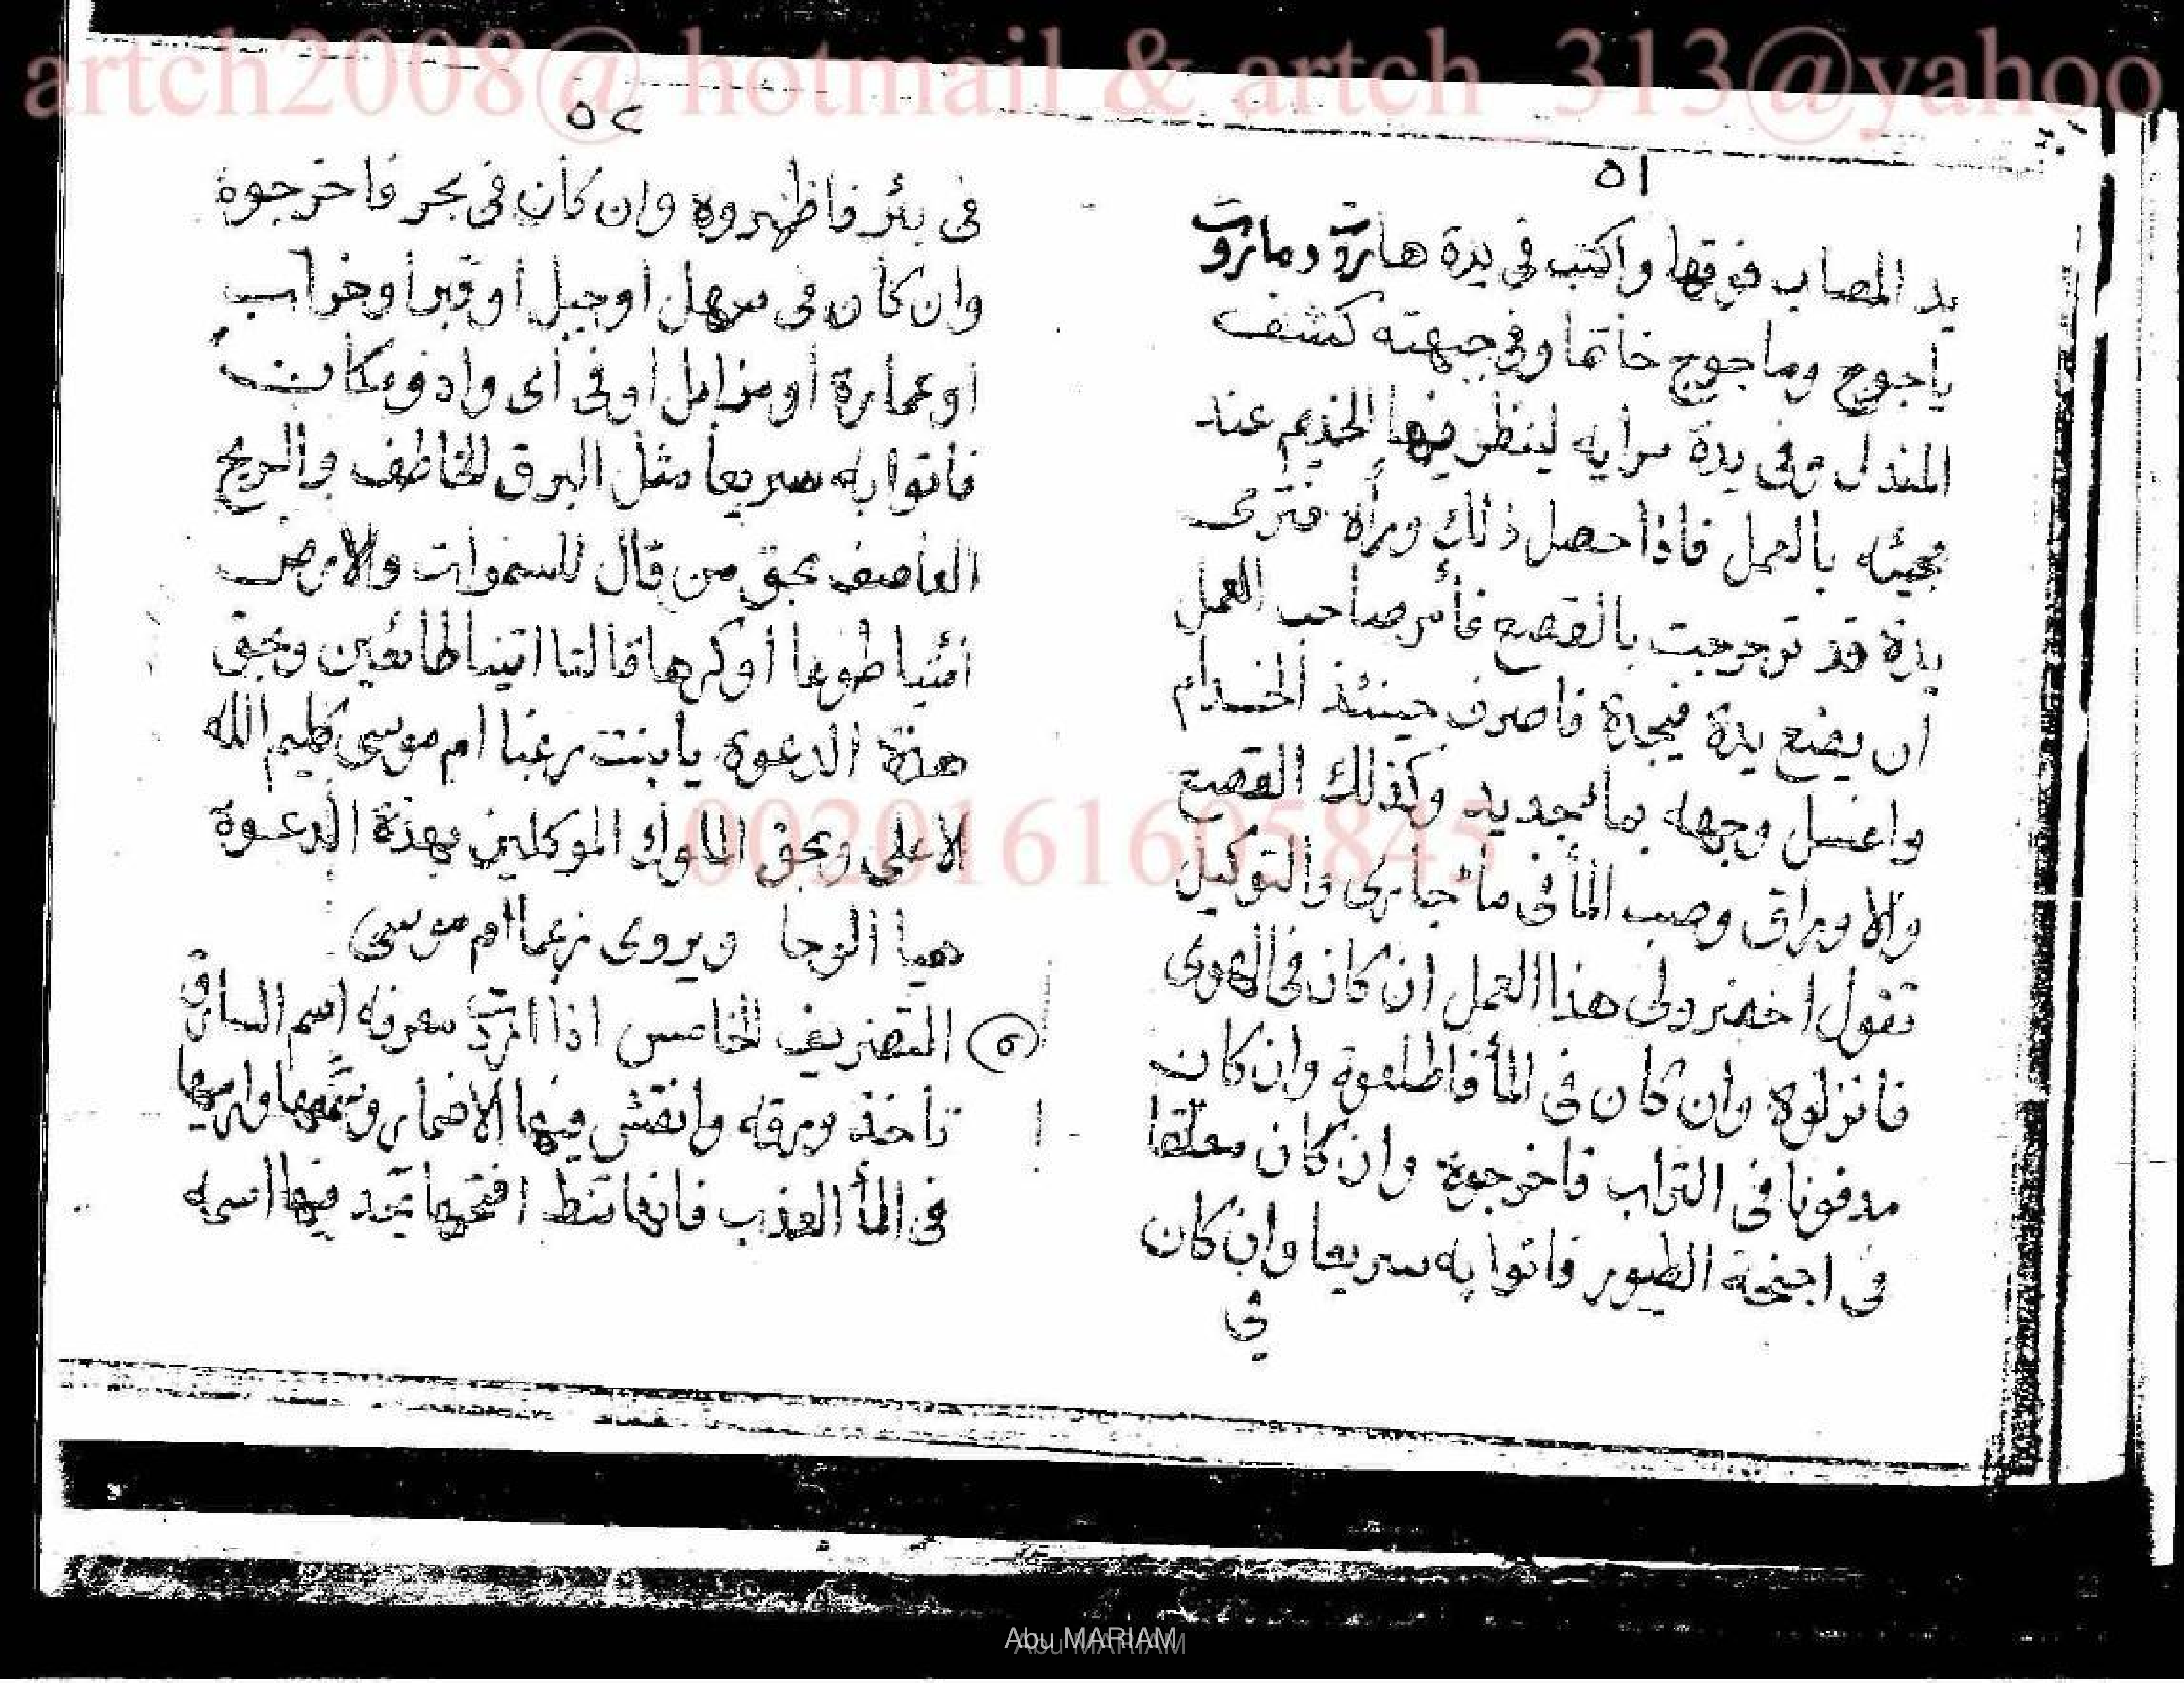 artch2008@ hotmail & artch_313@yahoo
٥١
يد المصاب فوقها واكتب فى يدة هاروت وماروت
ياجوج وماجوج خاتما وفى جبهته كشف
المندل وفى يدة مرايه لينظر فيها الخديم عند
مجيئه بالعمل فاذا حصل ذلك ورأة فترى
يدة قد توحوحت بالقصع فأمر صاحب العمل
أن يضع يدة فيجدة فاصرف حينئذ الخدام
واغسل وجهه بمأ جديد وكذلك القصع
والاوراق وصب المأ فى مأ جارى والتوكيل
تقول احضرولى هذا العمل ان كان فى الهوى
فانزلوة وان كان فى المأ فاطلعوة وان كان
مدفونا فى التراب فاخرجوة وان كان معلقا
فى اجنحة الطيور فاتوا به سريعا وان كان
فى
٥٢
فى بئر فاظهروه وان كان فى بحر فاخرجوة
وان كان فى سهل أوجبل أوقبر أوخراب
اوعمارة أومزابل أوفى أى واد ومكان
فأتوا به سريعا مثل البرق الخاطف والريح
العاصف بحق من قال للسموات والارض
أئتيا طوعا أوكرها قالتا اتينا طائعين وبحق
هذة الدعوة يابنت رغبا ام موسى كليم الله
الاعلى وبحق الملوك الموكلين بهذة الدعوة
هيا الوحا ويروى زعما ام موسى
٥ التصريف الخامس اذا اردت معرفه اسم السارق
تأخذ ورقه وانقش فيها الاضمار وشمعها وارميها
فى المأ العذب فانها تنط افتحها تجد فيها اسمه
00201616058​45
Abu MARIAM